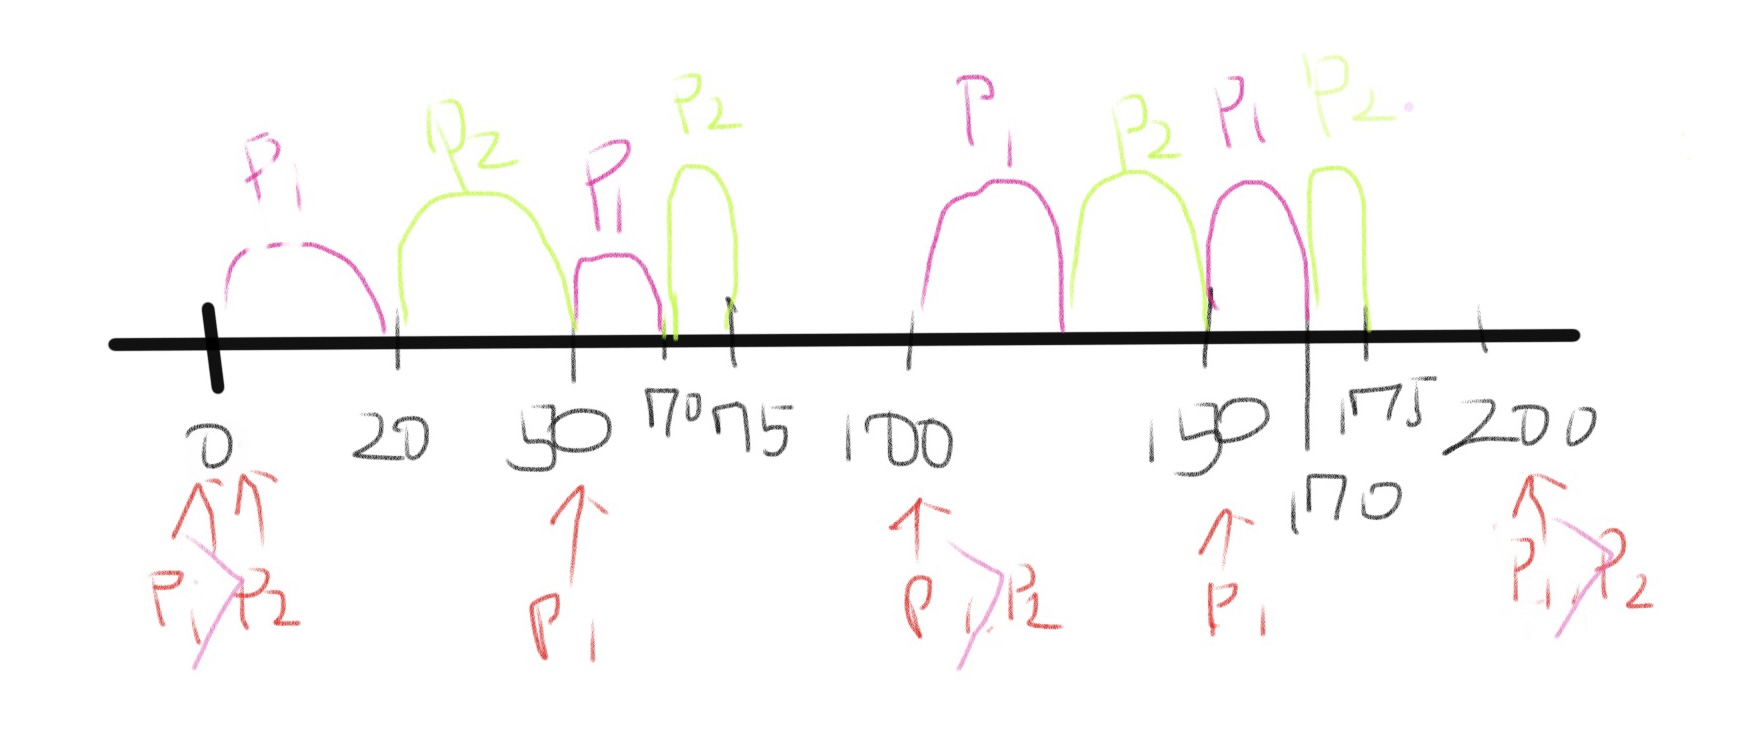 P1 P2 P1 P2 P1 P2 P1 P2
0 20 50 70 75 100 150 170 175 200
P1 > P2 P1 P1 > P2 P1 P1 > P2